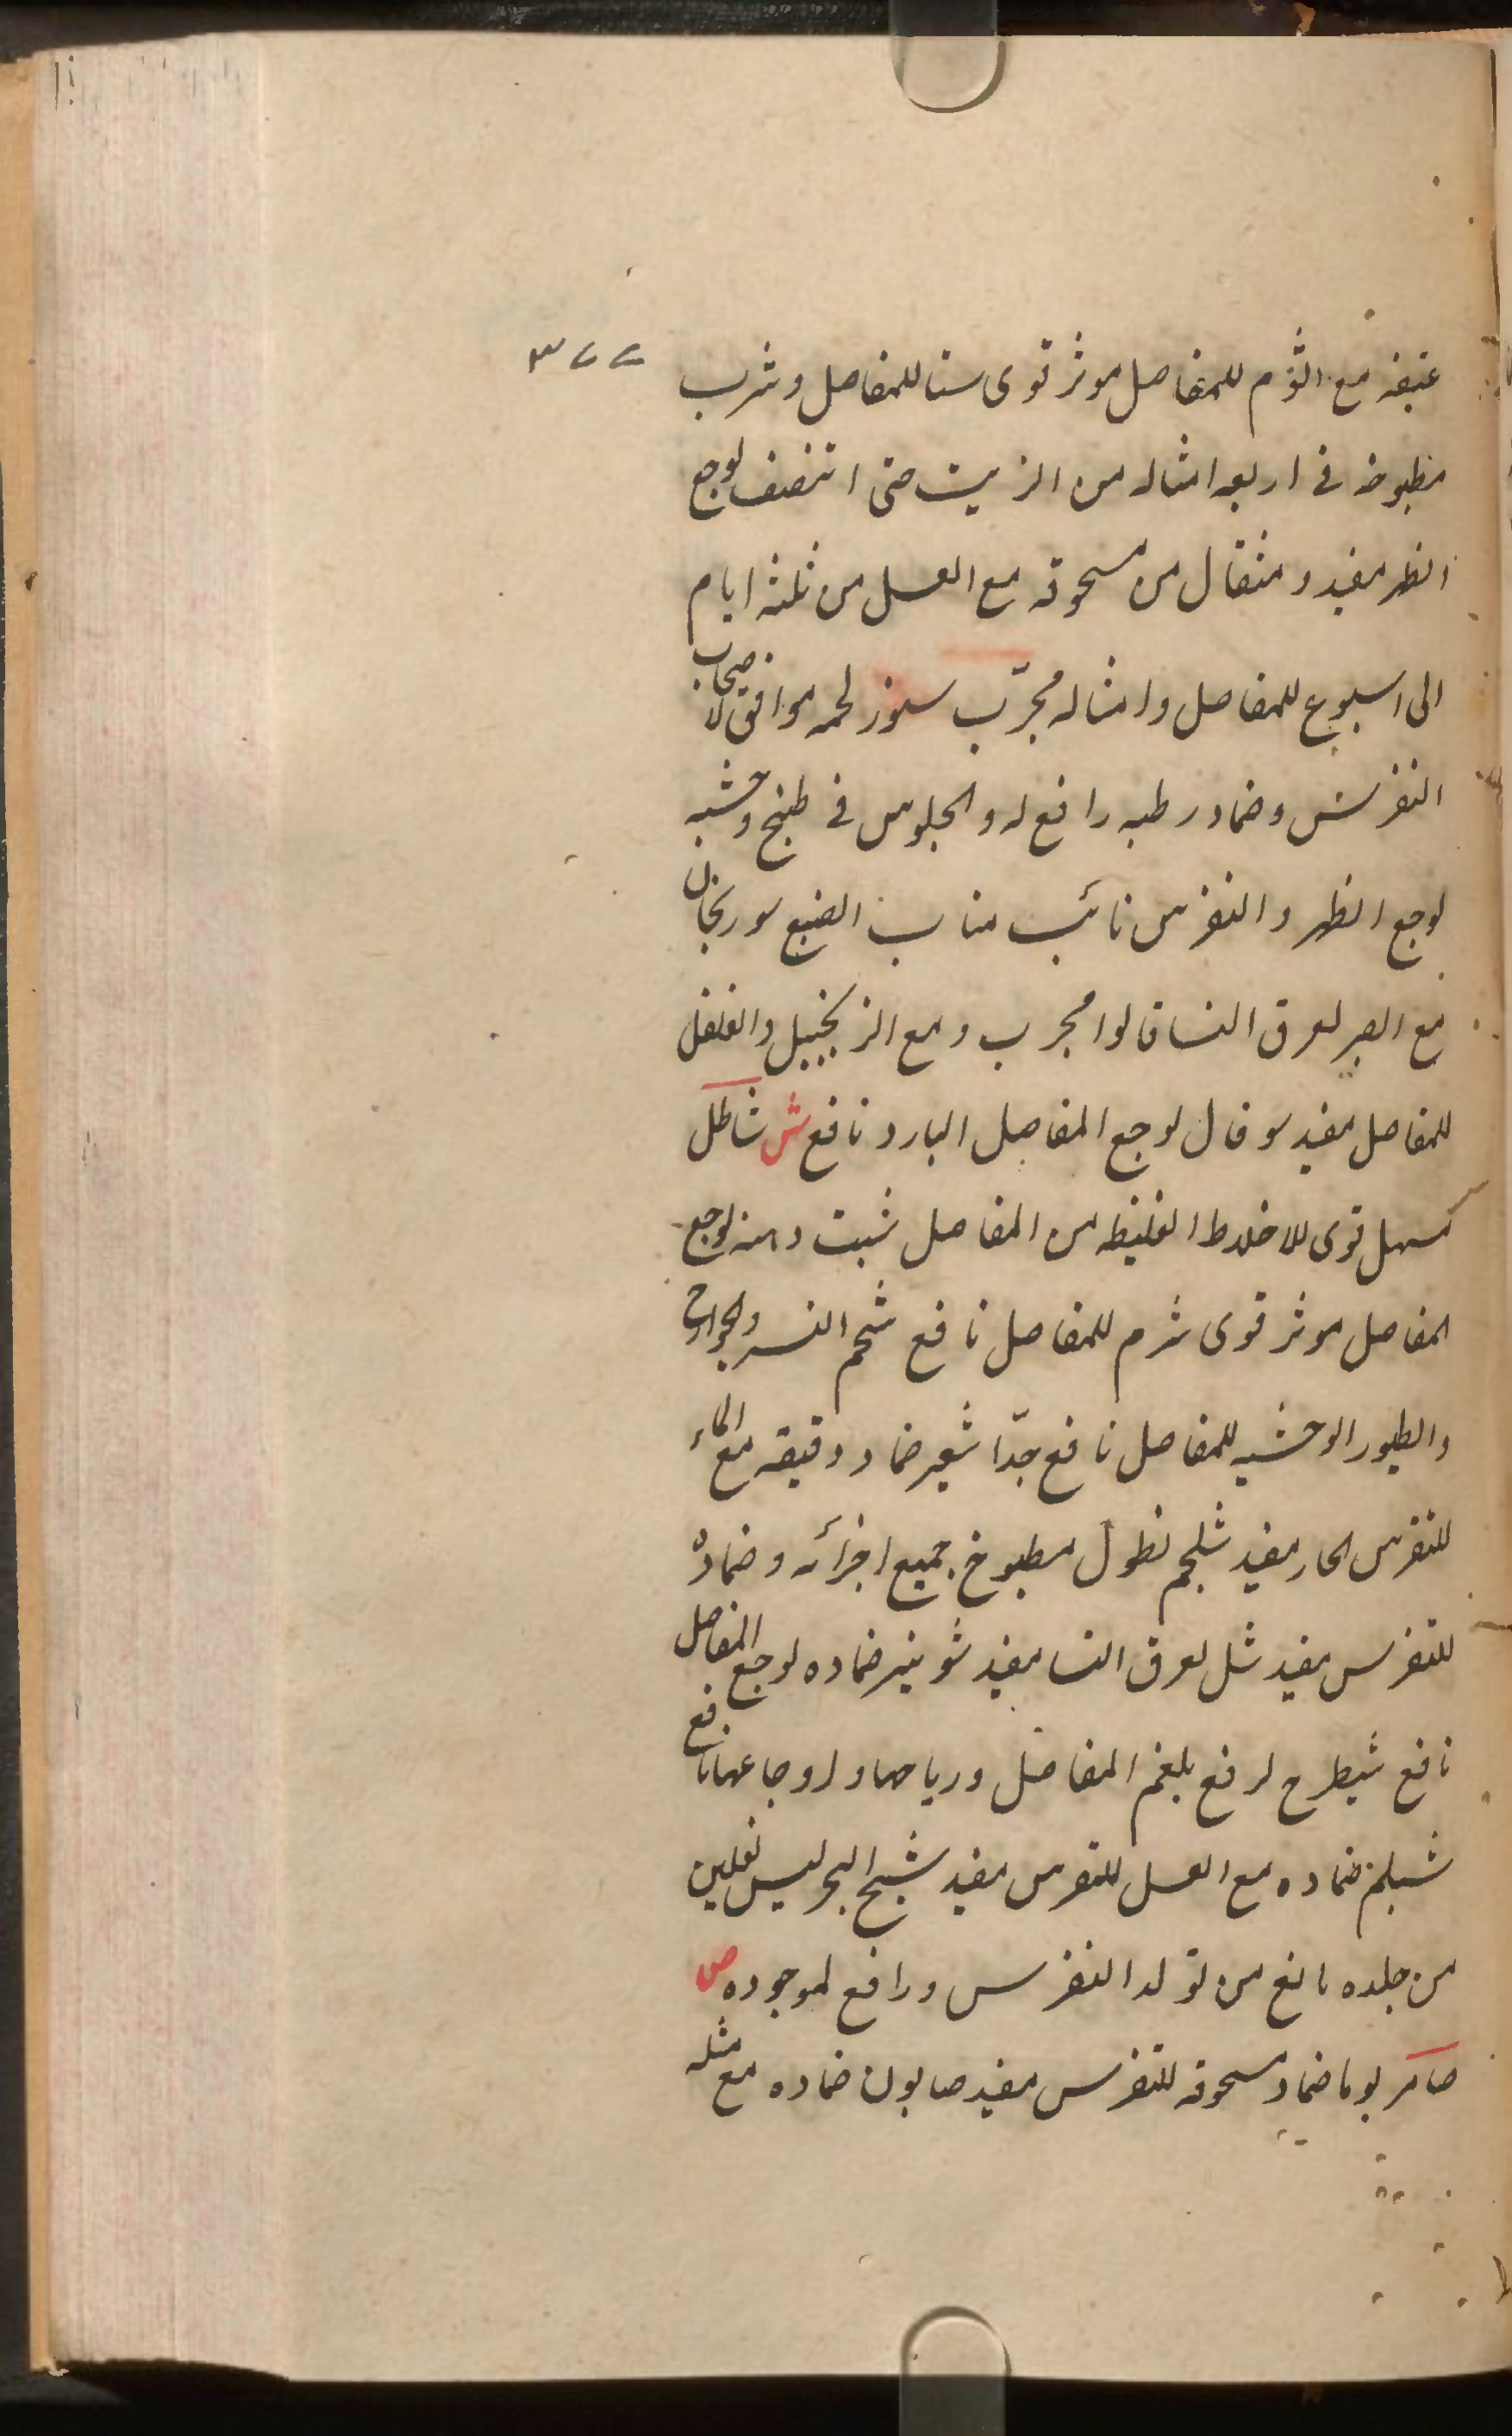 عتیقه مع الثوم للمفاصل موثر قوی سنا للمفاصل و شرب
مطبوخه فی اربعه امثاله من الزیت حتی انتصف لوجع
الظهر مفید و مثقال من مسحوقه مع العسل من ثلثه ایام
الی اسبوع للمفاصل و امثاله مجرّب سنور لحمه موافق لاصحاب
النقرس و ضماد رطبه رافع له و الجلوس فی طبیخ وحشیه
لوجع الظهر و النقرس نائب مناب الضبع سورنجان
مع الصبر لعرق النسا قالوا مجرب و مع الزنجبیل و الفلفل
للمفاصل مفید سوفال لوجع المفاصل البارد نافع ش شاطل
مسهل قوی للاخلاط الغلیظه من المفاصل شبت دهنه لوجع
المفاصل موثر قوی شرم للمفاصل نافع شحم النسر و الجوارح
و الطیور الوحشیه للمفاصل نافع جدّا شعیر ضماد دقیقه مع الماء
للنقرس الحار مفید شلجم نطول مطبوخ جمیع اجزائه و ضماده
للنقرس مفید شل لعرق النسا مفید شونیز ضماده لوجع المفاصل
نافع شیطرج لرفع بلغم المفاصل و ریاحها و اوجاعها نافع
شیلم ضماده مع العسل للنقرس مفید شیخ البحر لیس نعلین
من جلده مانع من تولد النقرس و رافع لموجوده ص
صامر یوما ضماد مسحوقه للنقرس مفید صابون ضماده مع مثله